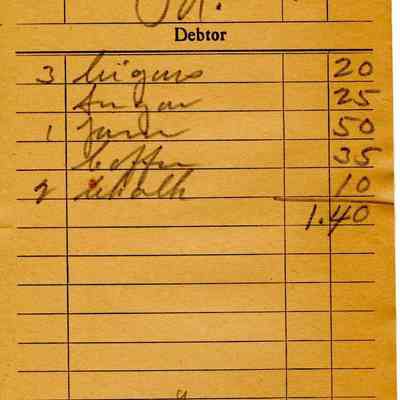 Debtor
3 cigars 20
sugar 25
1 50
coffee 35
2 chalk 10
1.40